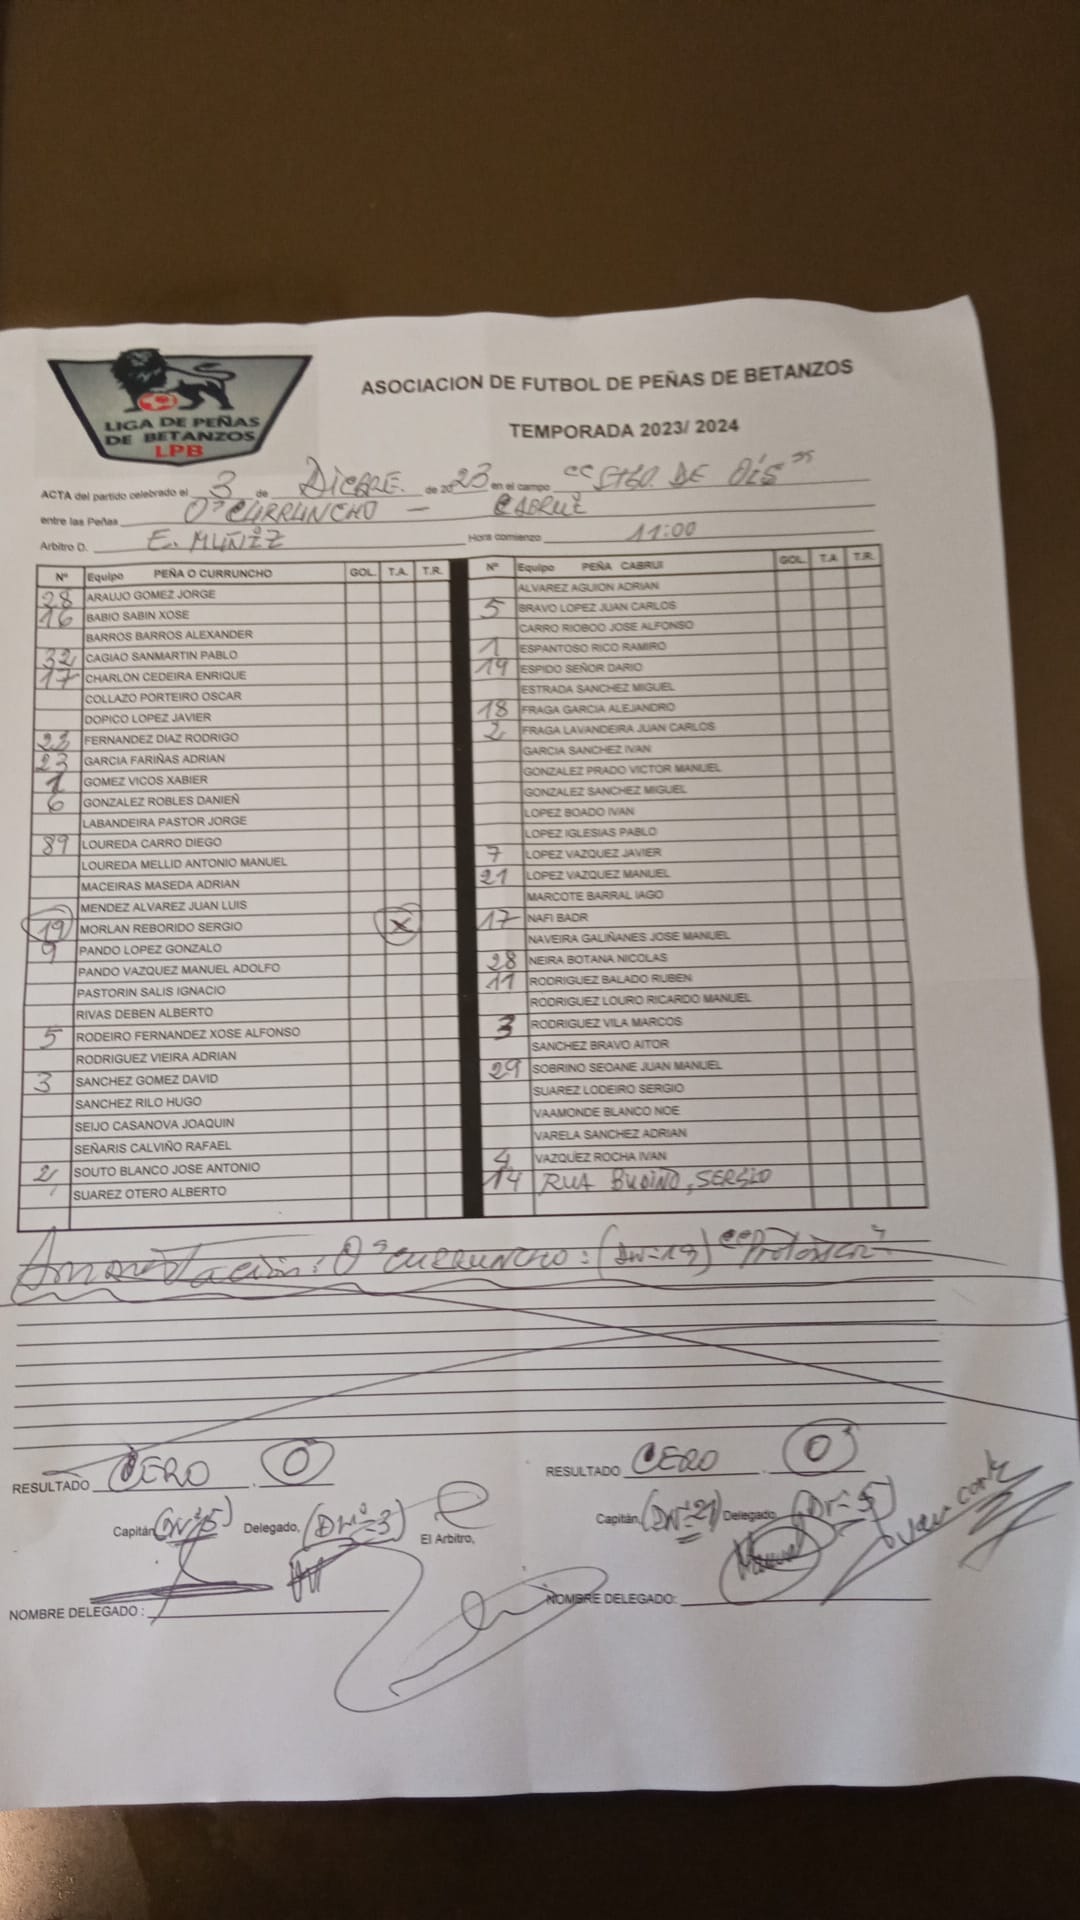 LIGA DE PEÑAS
DE BETANZOS
LPB
ASOCIACION DE FUTBOL DE PEÑAS DE BETANZOS
TEMPORADA 2023/ 2024
ACTA del partido celebrado el 3 de DICBRE. de 2023 en el campo
entre las Peñas O CURRUNCHO - CABRUI
Arbitro D. E. MUÑIZ Hora comienzo 11:00
Nº Equipo PEÑA O CURRUNCHO GOL. T.A. T.R.
28 ARAUJO GOMEZ JORGE
16 BABIO SABIN XOSE
BARROS BARROS ALEXANDER
32 CAGIAO SANMARTIN PABLO
17 CHARLON CEDEIRA ENRIQUE
COLLAZO PORTEIRO OSCAR
DOPICO LOPEZ JAVIER
FERNANDEZ DIAZ RODRIGO
23 GARCIA FARIÑAS ADRIAN
1 GOMEZ VICOS XABIER
6 GONZALEZ ROBLES DANIEÑ
LABANDEIRA PASTOR JORGE
89 LOUREDA CARRO DIEGO
LOUREDA MELLID ANTONIO MANUEL
MACEIRAS MASEDA ADRIAN
MENDEZ ALVAREZ JUAN LUIS
19 MORLAN REBORIDO SERGIO X
9 PANDO LOPEZ GONZALO
PANDO VAZQUEZ MANUEL ADOLFO
PASTORIN SALIS IGNACIO
RIVAS DEBEN ALBERTO
5 RODEIRO FERNANDEZ XOSE ALFONSO
RODRIGUEZ VIEIRA ADRIAN
3 SANCHEZ GOMEZ DAVID
SANCHEZ RILO HUGO
SEIJO CASANOVA JOAQUIN
SEÑARIS CALVIÑO RAFAEL
2 SOUTO BLANCO JOSE ANTONIO
SUAREZ OTERO ALBERTO
Nº Equipo PEÑA CABRUI GOL. T.A T.R.
ALVAREZ AGUION ADRIAN
5 BRAVO LOPEZ JUAN CARLOS
CARRO RIOBOO JOSE ALFONSO
1 ESPANTOSO RICO RAMIRO
19 ESPIDO SEÑOR DARIO
ESTRADA SANCHEZ MIGUEL
18 FRAGA GARCIA ALEJANDRO
2 FRAGA LAVANDEIRA JUAN CARLOS
GARCIA SANCHEZ IVAN
GONZALEZ PRADO VICTOR MANUEL
GONZALEZ SANCHEZ MIGUEL
LOPEZ BOADO IVAN
LOPEZ IGLESIAS PABLO
7 LOPEZ VAZQUEZ JAVIER
21 LOPEZ VAZQUEZ MANUEL
MARCOTE BARRAL IAGO
17 NAFI BADR
NAVEIRA GALIÑANES JOSE MANUEL
28 NEIRA BOTANA NICOLAS
11 RODRIGUEZ BALADO RUBEN
RODRIGUEZ LOURO RICARDO MANUEL
3 RODRIGUEZ VILA MARCOS
SANCHEZ BRAVO AITOR
29 SOBRINO SEOANE JUAN MANUEL
SUAREZ LODEIRO SERGIO
VAAMONDE BLANCO NOE
VARELA SANCHEZ ADRIAN
4 VAZQUEZ ROCHA IVAN
14 RUA BUDIÑO, SERGIO
RESULTADO CERO . 0
RESULTADO CERO . 0
Capitán, Delegado, El Arbitro,
Capitán, Delegado,
NOMBRE DELEGADO :
NOMBRE DELEGADO: